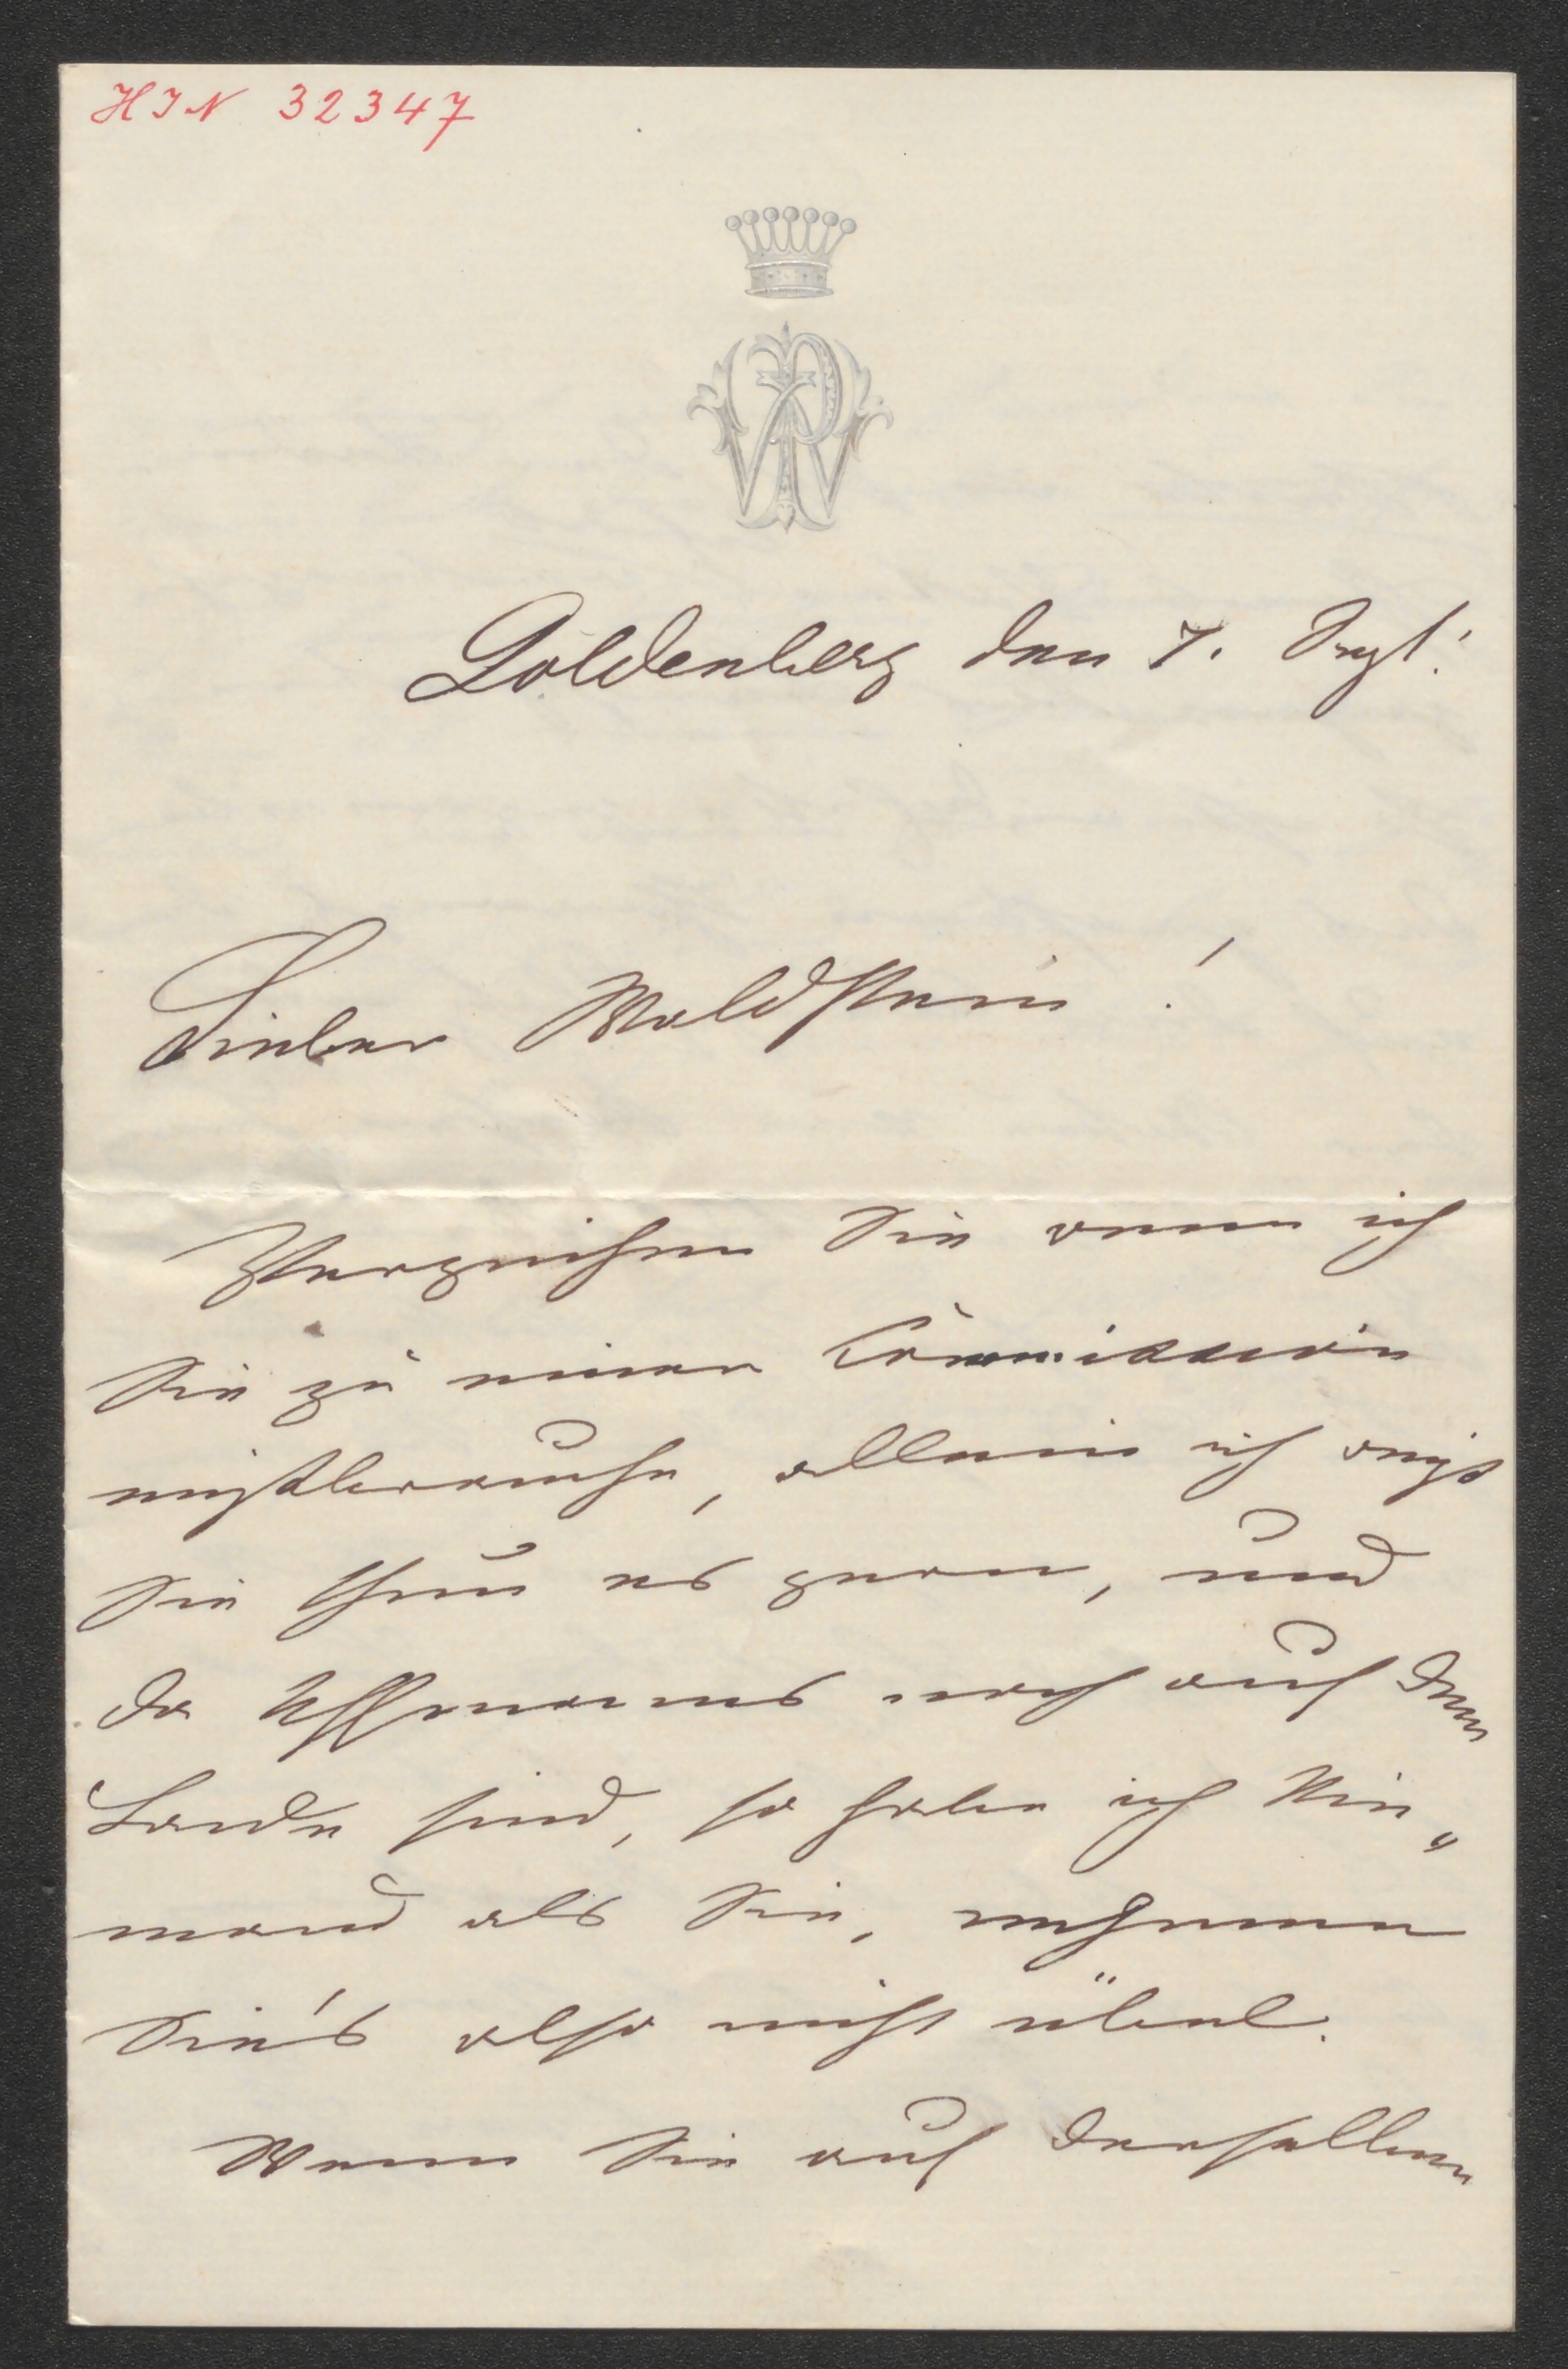 HIN 32347
Goldenberg den 7. Sept.
Lieber Waldstein!
Verzeihen Sie wenn ich
Sie zu einer Commission
mißbrauche, allein ich weiß
Sie thun es gern, und
da noch auf dem
Lande sind, so habe ich Nie„
mand als Sie, nehmen
Sie's also nicht übel.
Wenn Sie auf derselben